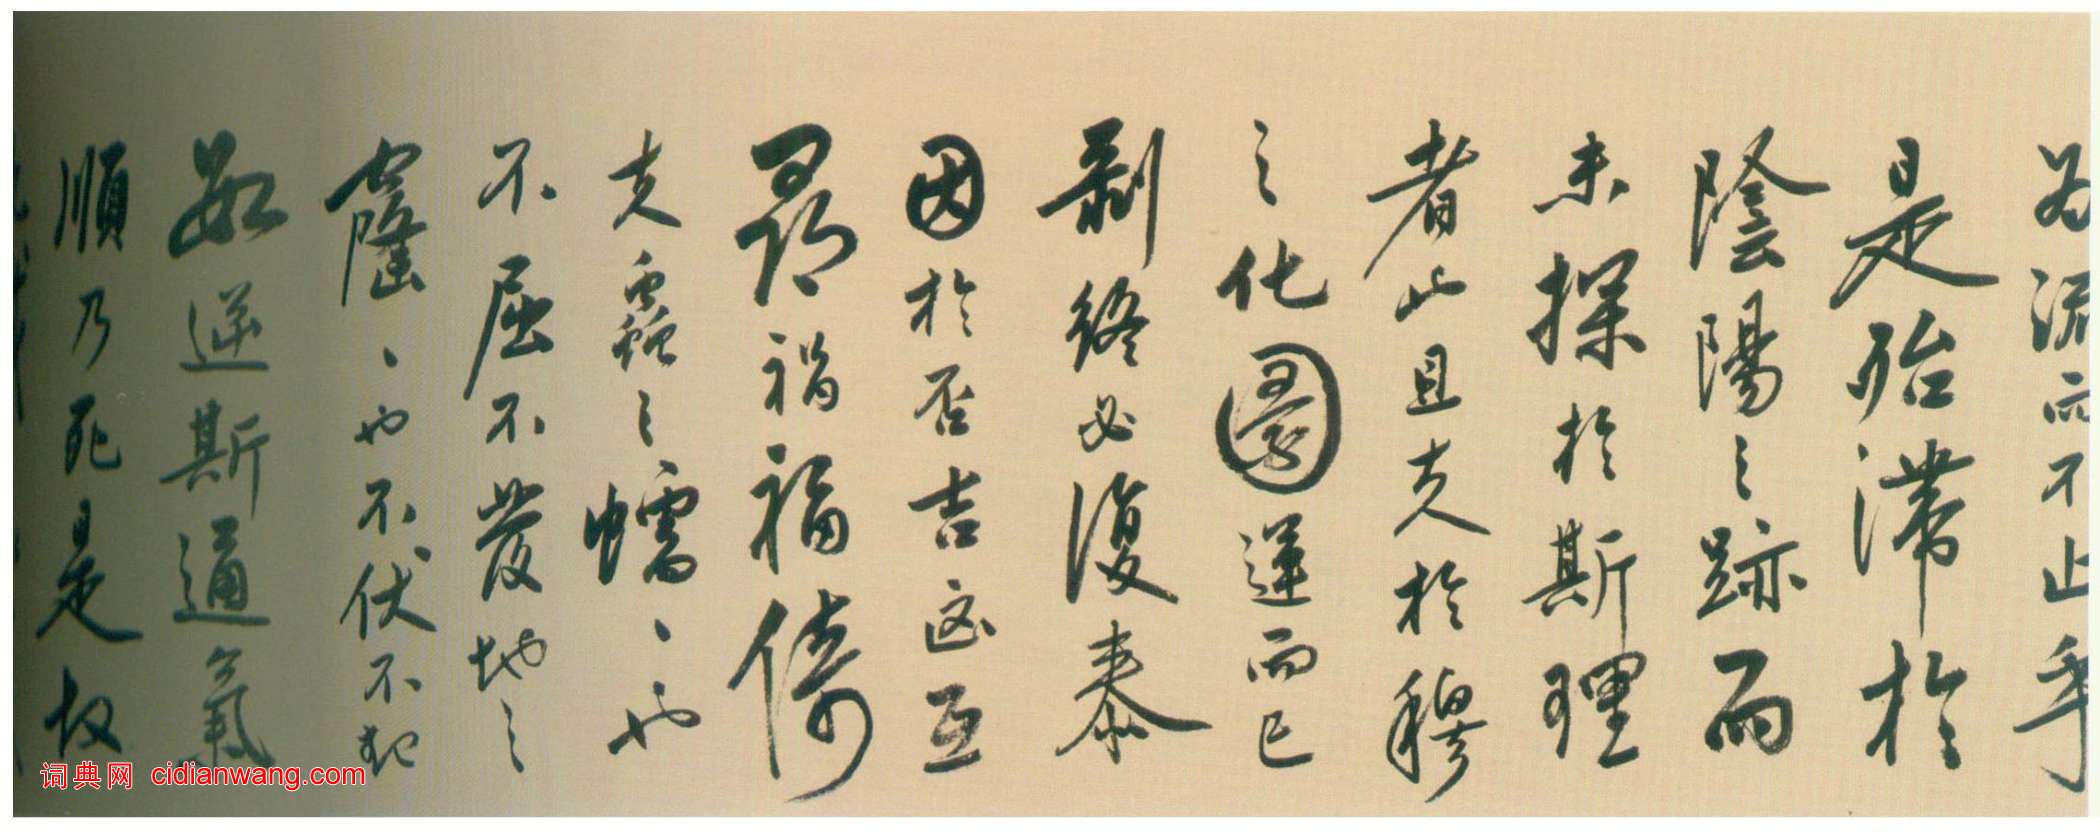 为流而不止乎
是殆滞於
陰陽之跡而
未探於斯理
者此且夫於穆
之化圜運而已
剥終必復泰
因於否吉凶互
尋禍福倚
夫蠱之蠕、也
不屈不發地之
窿、也不伏不犯
如逆斯通氣
順乃死是故
词典网 cidianwang.com